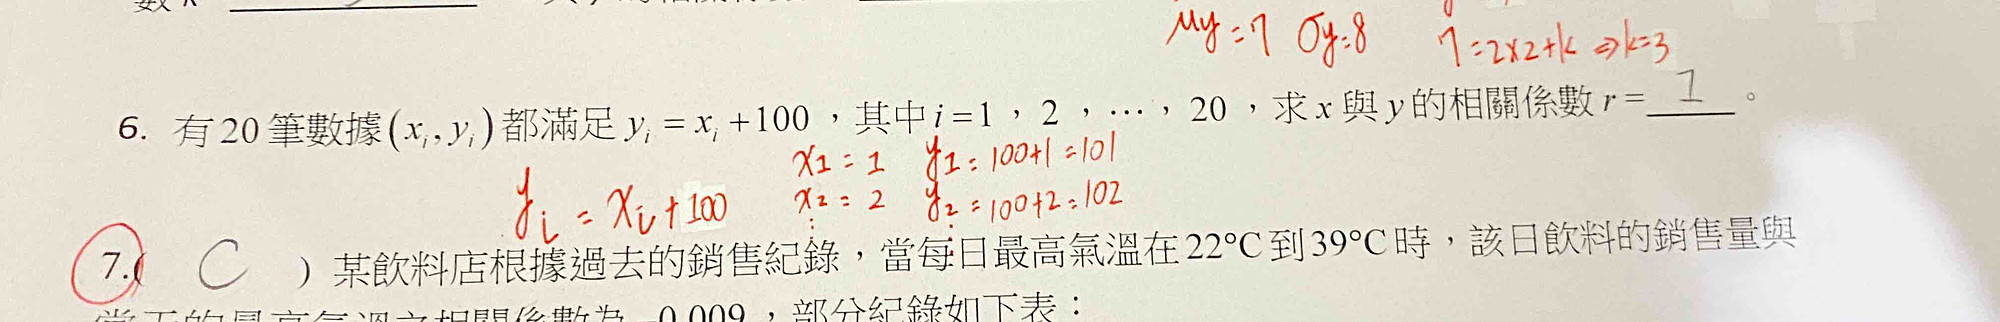 μy=7 σy=8 7=2×2+k ⇒k=3
6. 有20筆數據(xᵢ, yᵢ)都滿足 yᵢ = xᵢ +100,其中 i=1,2,…,20,求 x 與 y 的相關係數 r = 1 。
x1 = 1 y1 = 100+1 =101
yi = xi + 100 x2 = 2 y2 = 100+2 = 102
⋮ ⋮
7.( C ) 某飲料店根據過去的銷售紀錄,當每日最高氣溫在22°C到39°C時,該日飲料的銷售量與
當天的最高氣溫之相關係數為 -0.009,部分紀錄如下表: